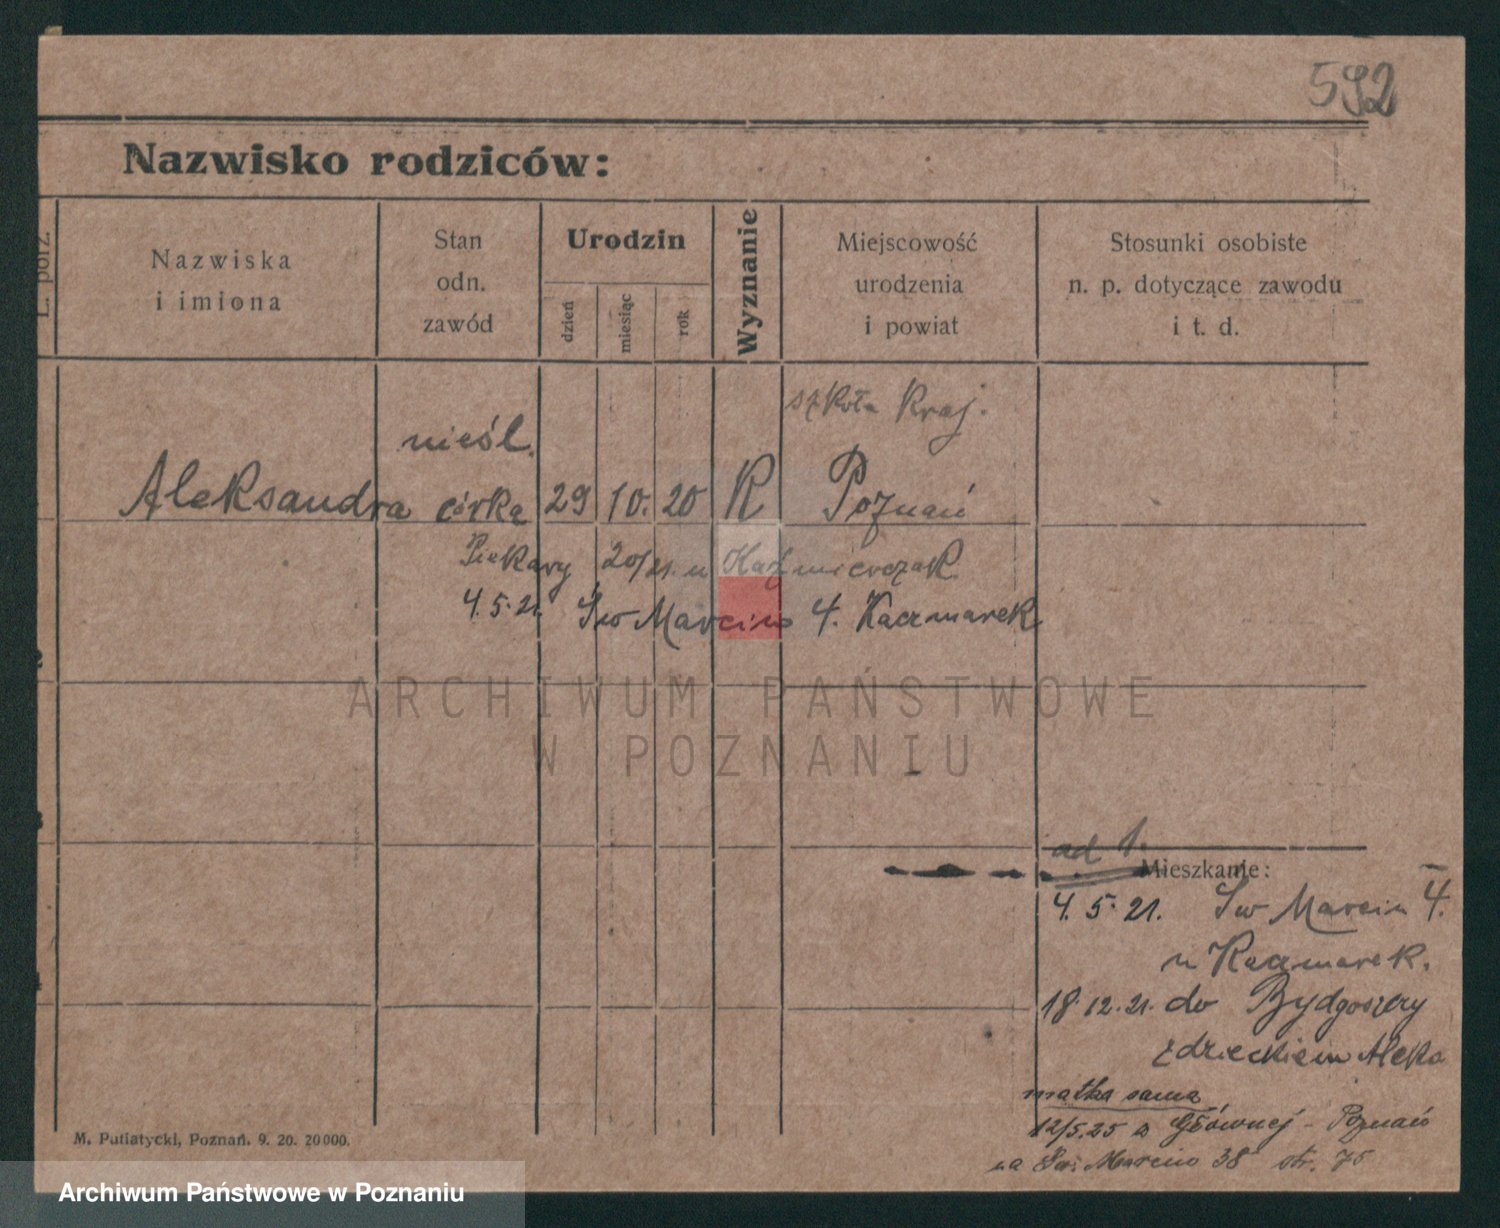 592
Nazwisko rodziców:
L. porz.
Nazwiska
i imiona
Stan
odn.
zawód
Urodzin
dzień
miesiąc
rok
Wyznanie
Miejscowość
urodzenia
i powiat
Stosunki osobiste
n. p. dotyczące zawodu
i t. d.
szkoła Kraj.
nieśl.
Aleksandra córka 29 10. 20 K Poznań
Piekary 20/21. u Kaźmierczak
4.5.21. Św Marcin 4. Kaczmarek
ARCHIWUM PAŃSTWOWE
W POZNANIU
ad 1.
Mieszkanie:
4. 5. 21. Św Marcin 4.
u Kaczmarek.
18.12.21. do Bydgoszczy
z dzieckiem Aleks
matka sama
12/5.25 z Głównej - Poznań
na Św. Marcin 38 str. 75
M. Putiatycki, Poznań. 9. 20. 20000.
Archiwum Państwowe w Poznaniu